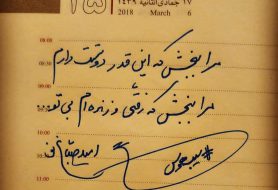 ۱۵
۱۷ جمادی الثانیة ۱۴۳۹
2018 March 6
08:00
مرا ببخش که این قدر دوستت دارم
09:00
مرا ببخش که رفتی و زنده ام بی تو
10:00
امید صباغ نو
11:00